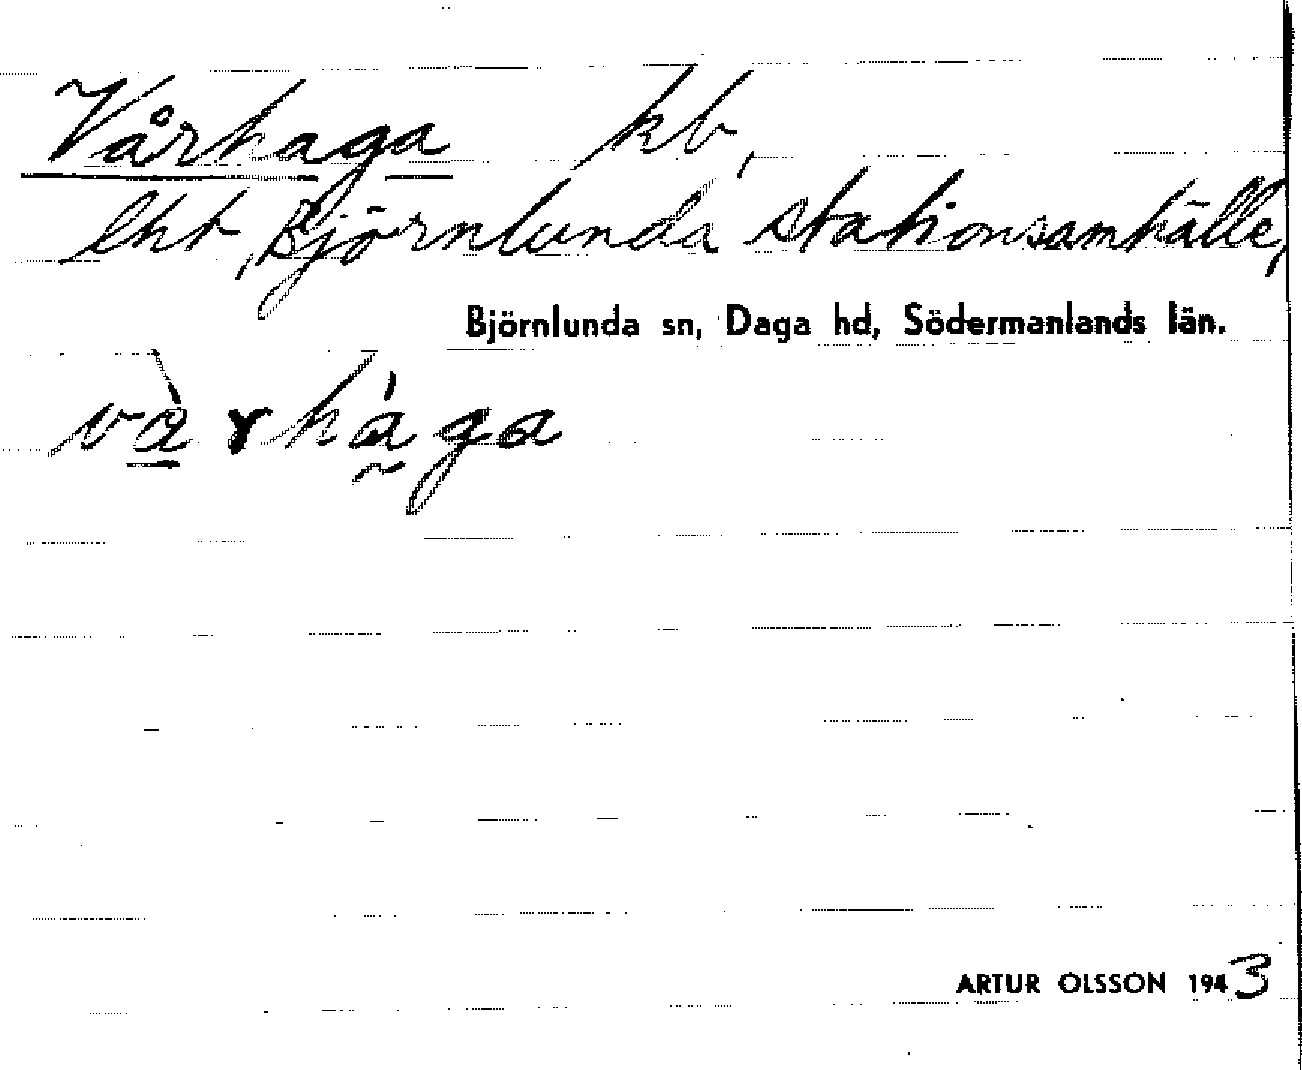 Vårhaga kb,
lht, Björnlunda stationsamhälle,
Björnlunda sn, Daga hd, Södermanlands län.
và̱rhá̰ga
ARTUR OLSSON 1943